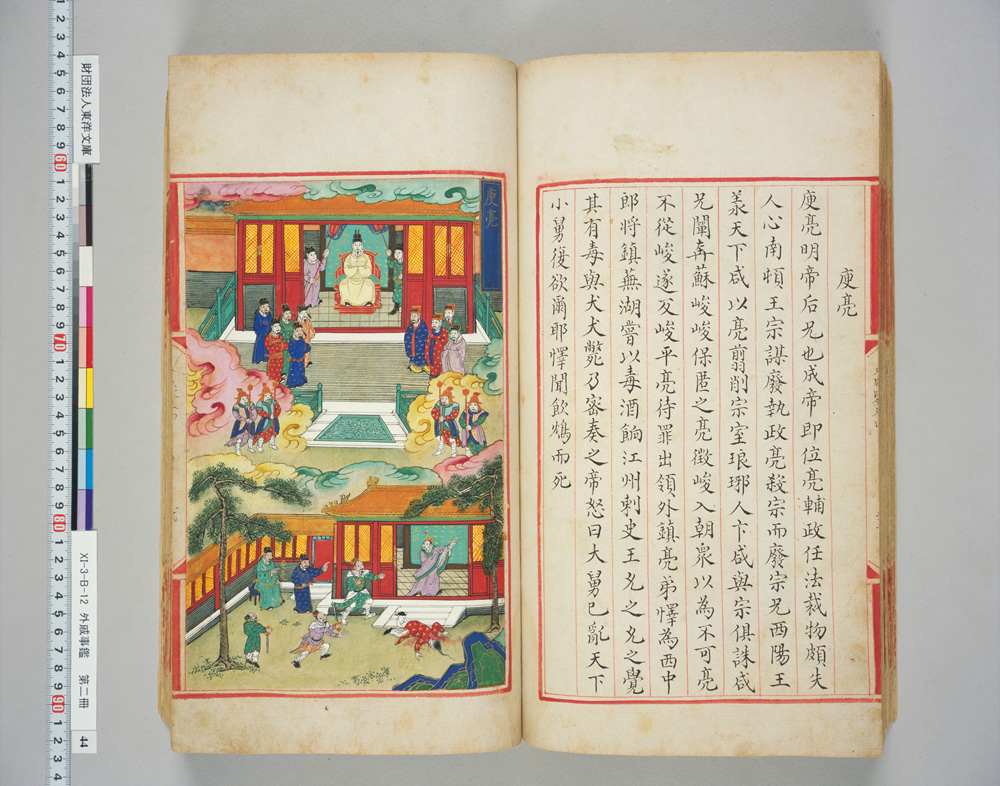 庾亮
庾亮明帝后兄也成帝即位亮輔政任法裁物頗失
人心南頓王宗謀廢執政亮殺宗而廢宗兄西陽王
羕天下咸以亮翦削宗室琅琊人卞咸與宗俱誅咸
兄闡奔蘇峻峻保匿之亮徵峻入朝衆以為不可亮
不從峻遂反峻平亮待罪出領外鎮亮弟懌為西中
郎將鎮蕪湖嘗以毒酒餉江州刺史王允之允之覺
其有毒與犬犬斃乃密奏之帝怒曰大舅已亂天下
小舅復欲爾耶懌聞飲鴆而死
庾亮
財団法人東洋文庫
XI-3-B-12 外戚事鑑 第二冊 44
1 2 3 4 5 6 7 8 9 60 1 2 3 4 5 6 7 8 9 70 1 2 3 4 5 6 7 8 9 80 1 2 3 4 5 6 7 8 9 90 1 2 3 4